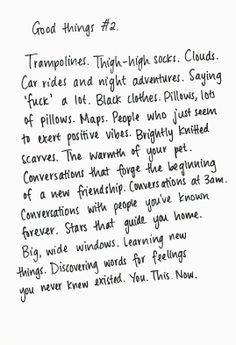 Good things #2.
Trampolines. Thigh-high socks. Clouds.
Car rides and night adventures. Saying
'fuck' a lot. Black clothes. Pillows, lots
of pillows. Maps. People who just seem
to exert positive vibes. Brightly knitted
scarves. The warmth of your pet.
Conversations that forge the beginning
of a new friendship. Conversations at 3am.
Conversations with people you've known
forever. Stars that guide you home.
Big, wide windows. Learning new
things. Discovering words for feelings
you never knew existed. You. This. Now.